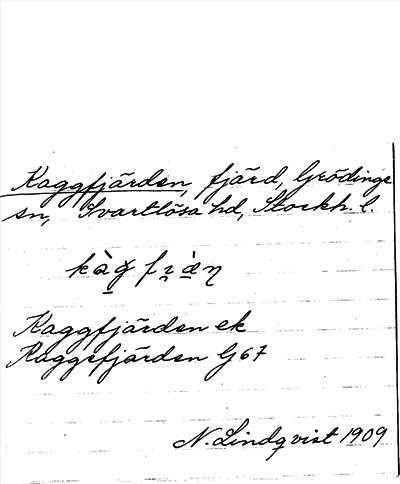 Kaggfjärden, fjärd, Grödinge
sn, Svartlösa hd, Stockh. l.
Kaggfjärden ek
Raggefjärden G 67
N. Lindqvist 1909